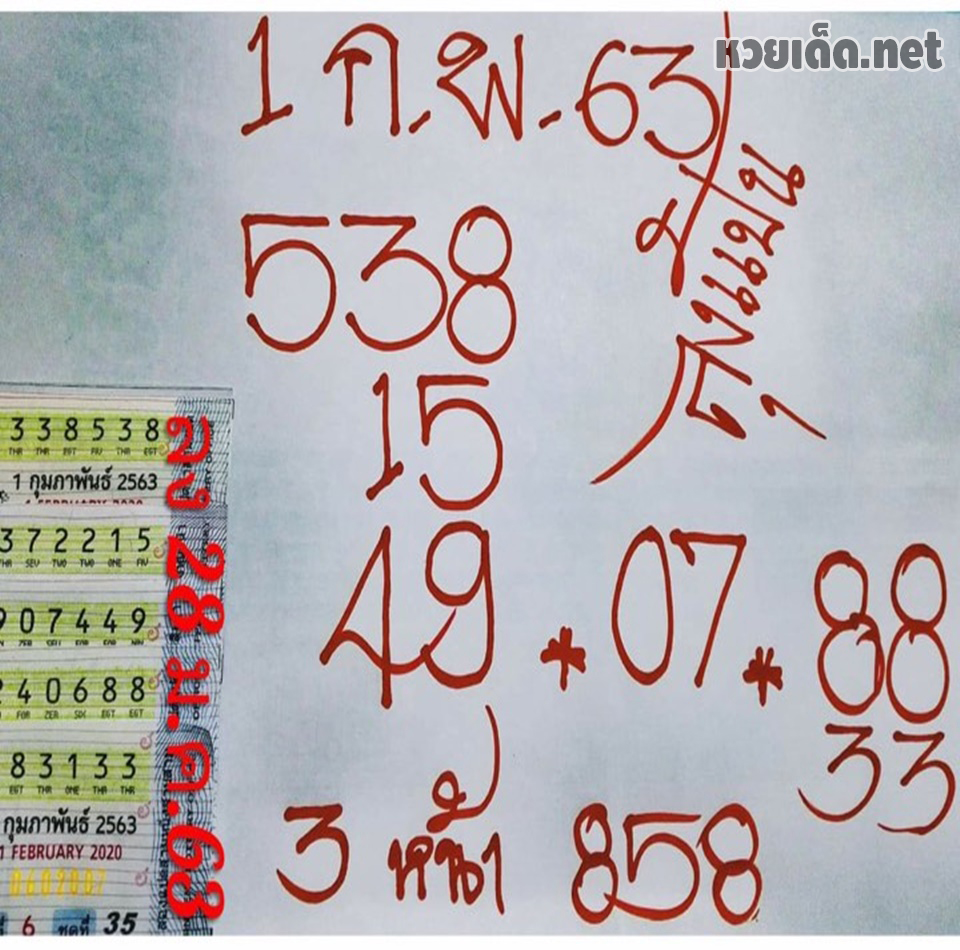 หวยเด็ด.net
1 ก.พ.63
538
15
49 * 07 * 88
33
3 หน้า 858
338538
THR THR EGT FIV THR EGT
1 กุมภาพันธ์ 2563
372215
THR SEV TWO TWO ONE FIV
907449
40688
FOR ZER SIX EGT EGT
83133
EGT THR ONE THR THR
กุมภาพันธ์ 2563
1 FEBRUARY 2020
6 ชุดที่ 35
ลง 28 ม.ค.63